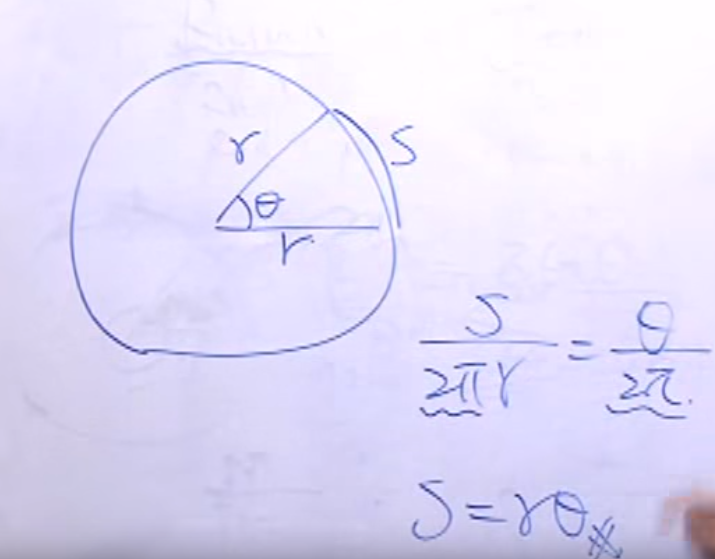 r
S
θ
r
S/2πr = θ/2π.
S=rθ